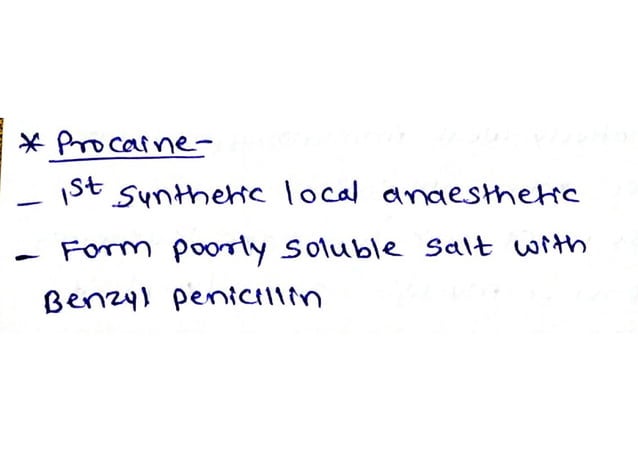 * Procaine-
- 1st Synthetic local anaesthetic
- Form poorly soluble salt with
Benzyl penicillin